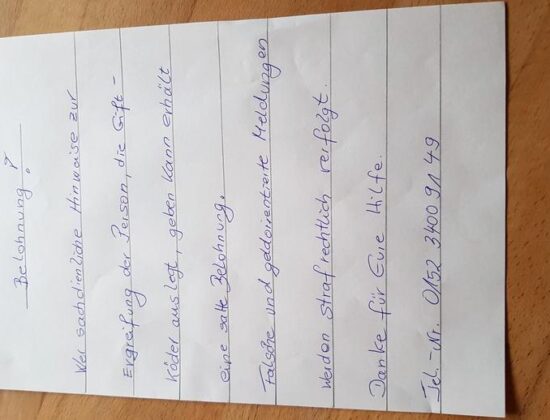 Belohnung?
Wer sachdienliche Hinweise zur
Ergreifung der Person, die Gift-
Köder auslegt, geben kann erhält
eine satte Belohnung.
Falsche und geldorientierte Meldungen
werden strafrechtlich verfolgt.
Danke für Eure Hilfe.
Tel.-Nr. 0152 34009149